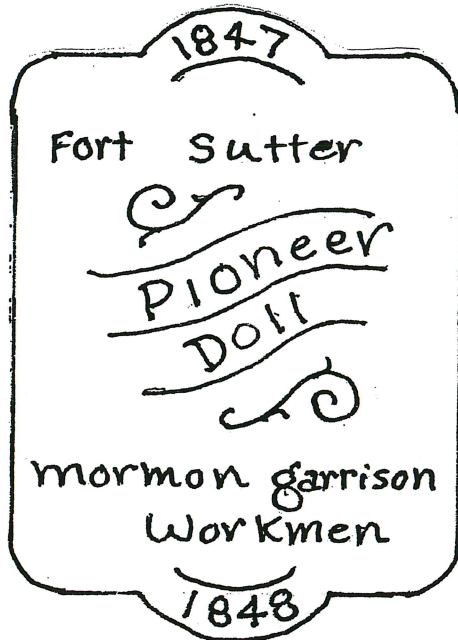 1847
Fort Sutter
Pioneer
Doll
mormon garrison
Workmen
1848